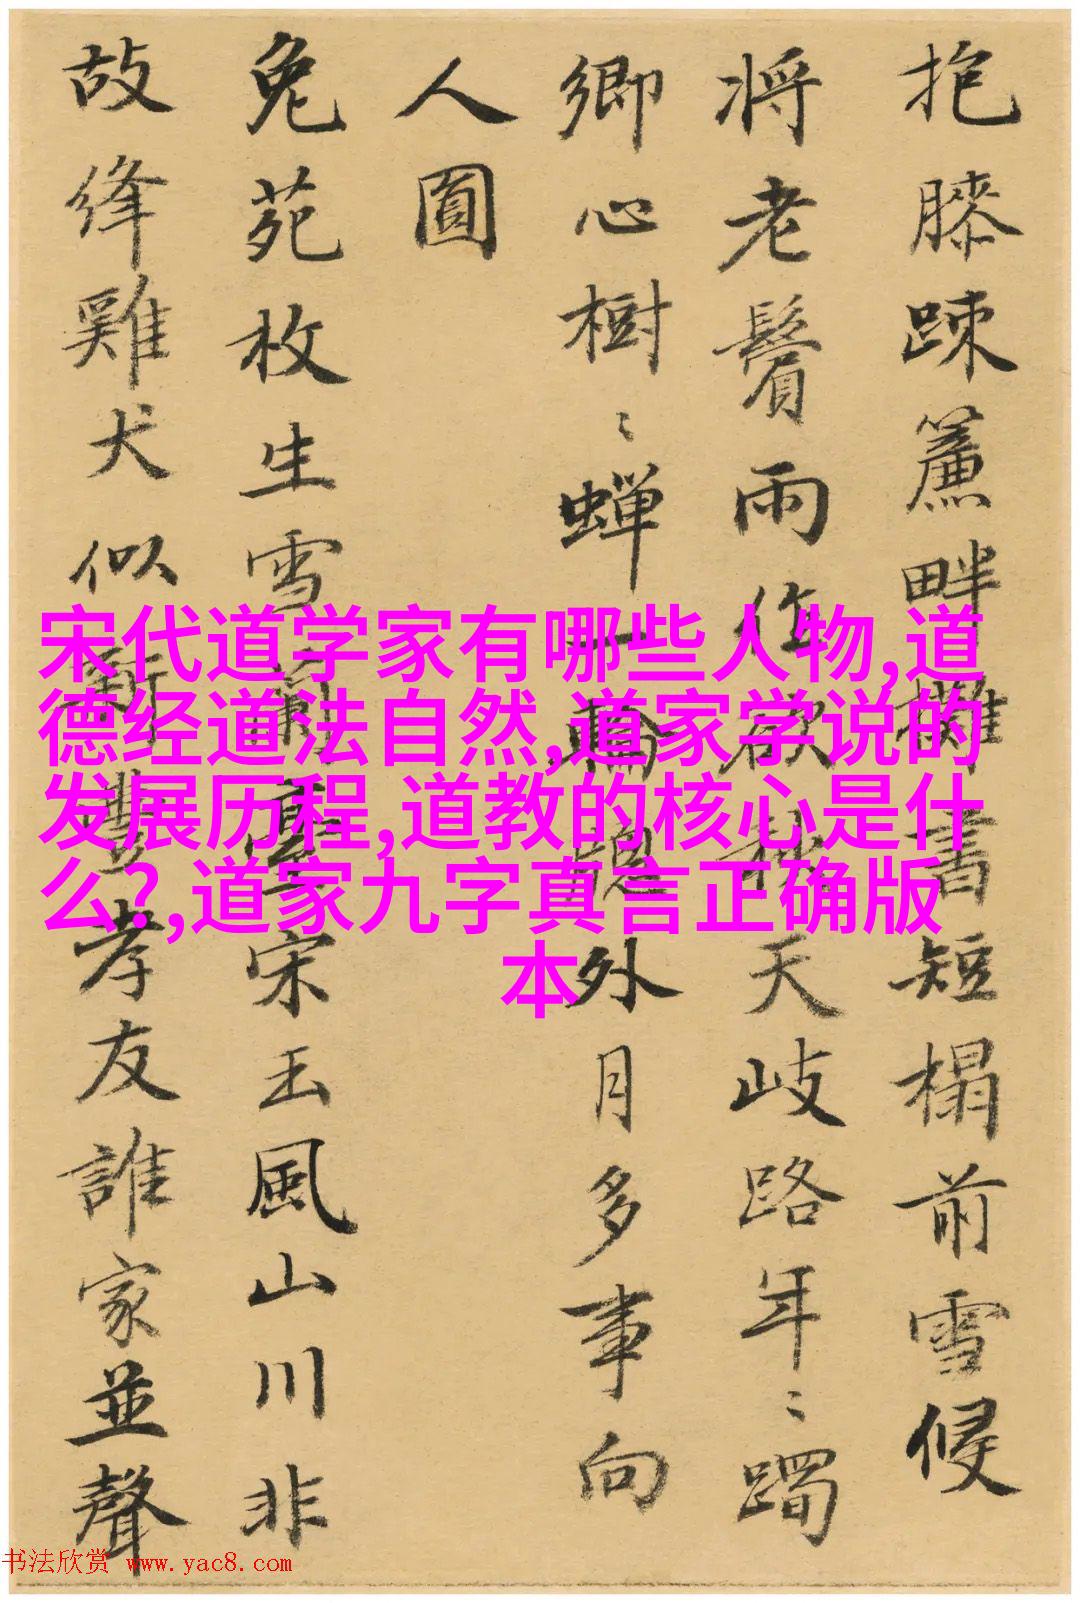 抱膝踈簾畔攤書短榻前雪侵
将老鬢雨作欲秋天岐路年〻躅
鄉心樹〻蟬一輪窓外月多事向
人圓
兔苑枚生雪蘭臺宋玉風山川非
故絳雞犬似新豐孝友誰家並聲
宋代道学家有哪些人物,道
德经道法自然,道家学说的
发展历程,道教的核心是什
么?,道家九字真言正确版
本
书法欣赏 www.yac8.com